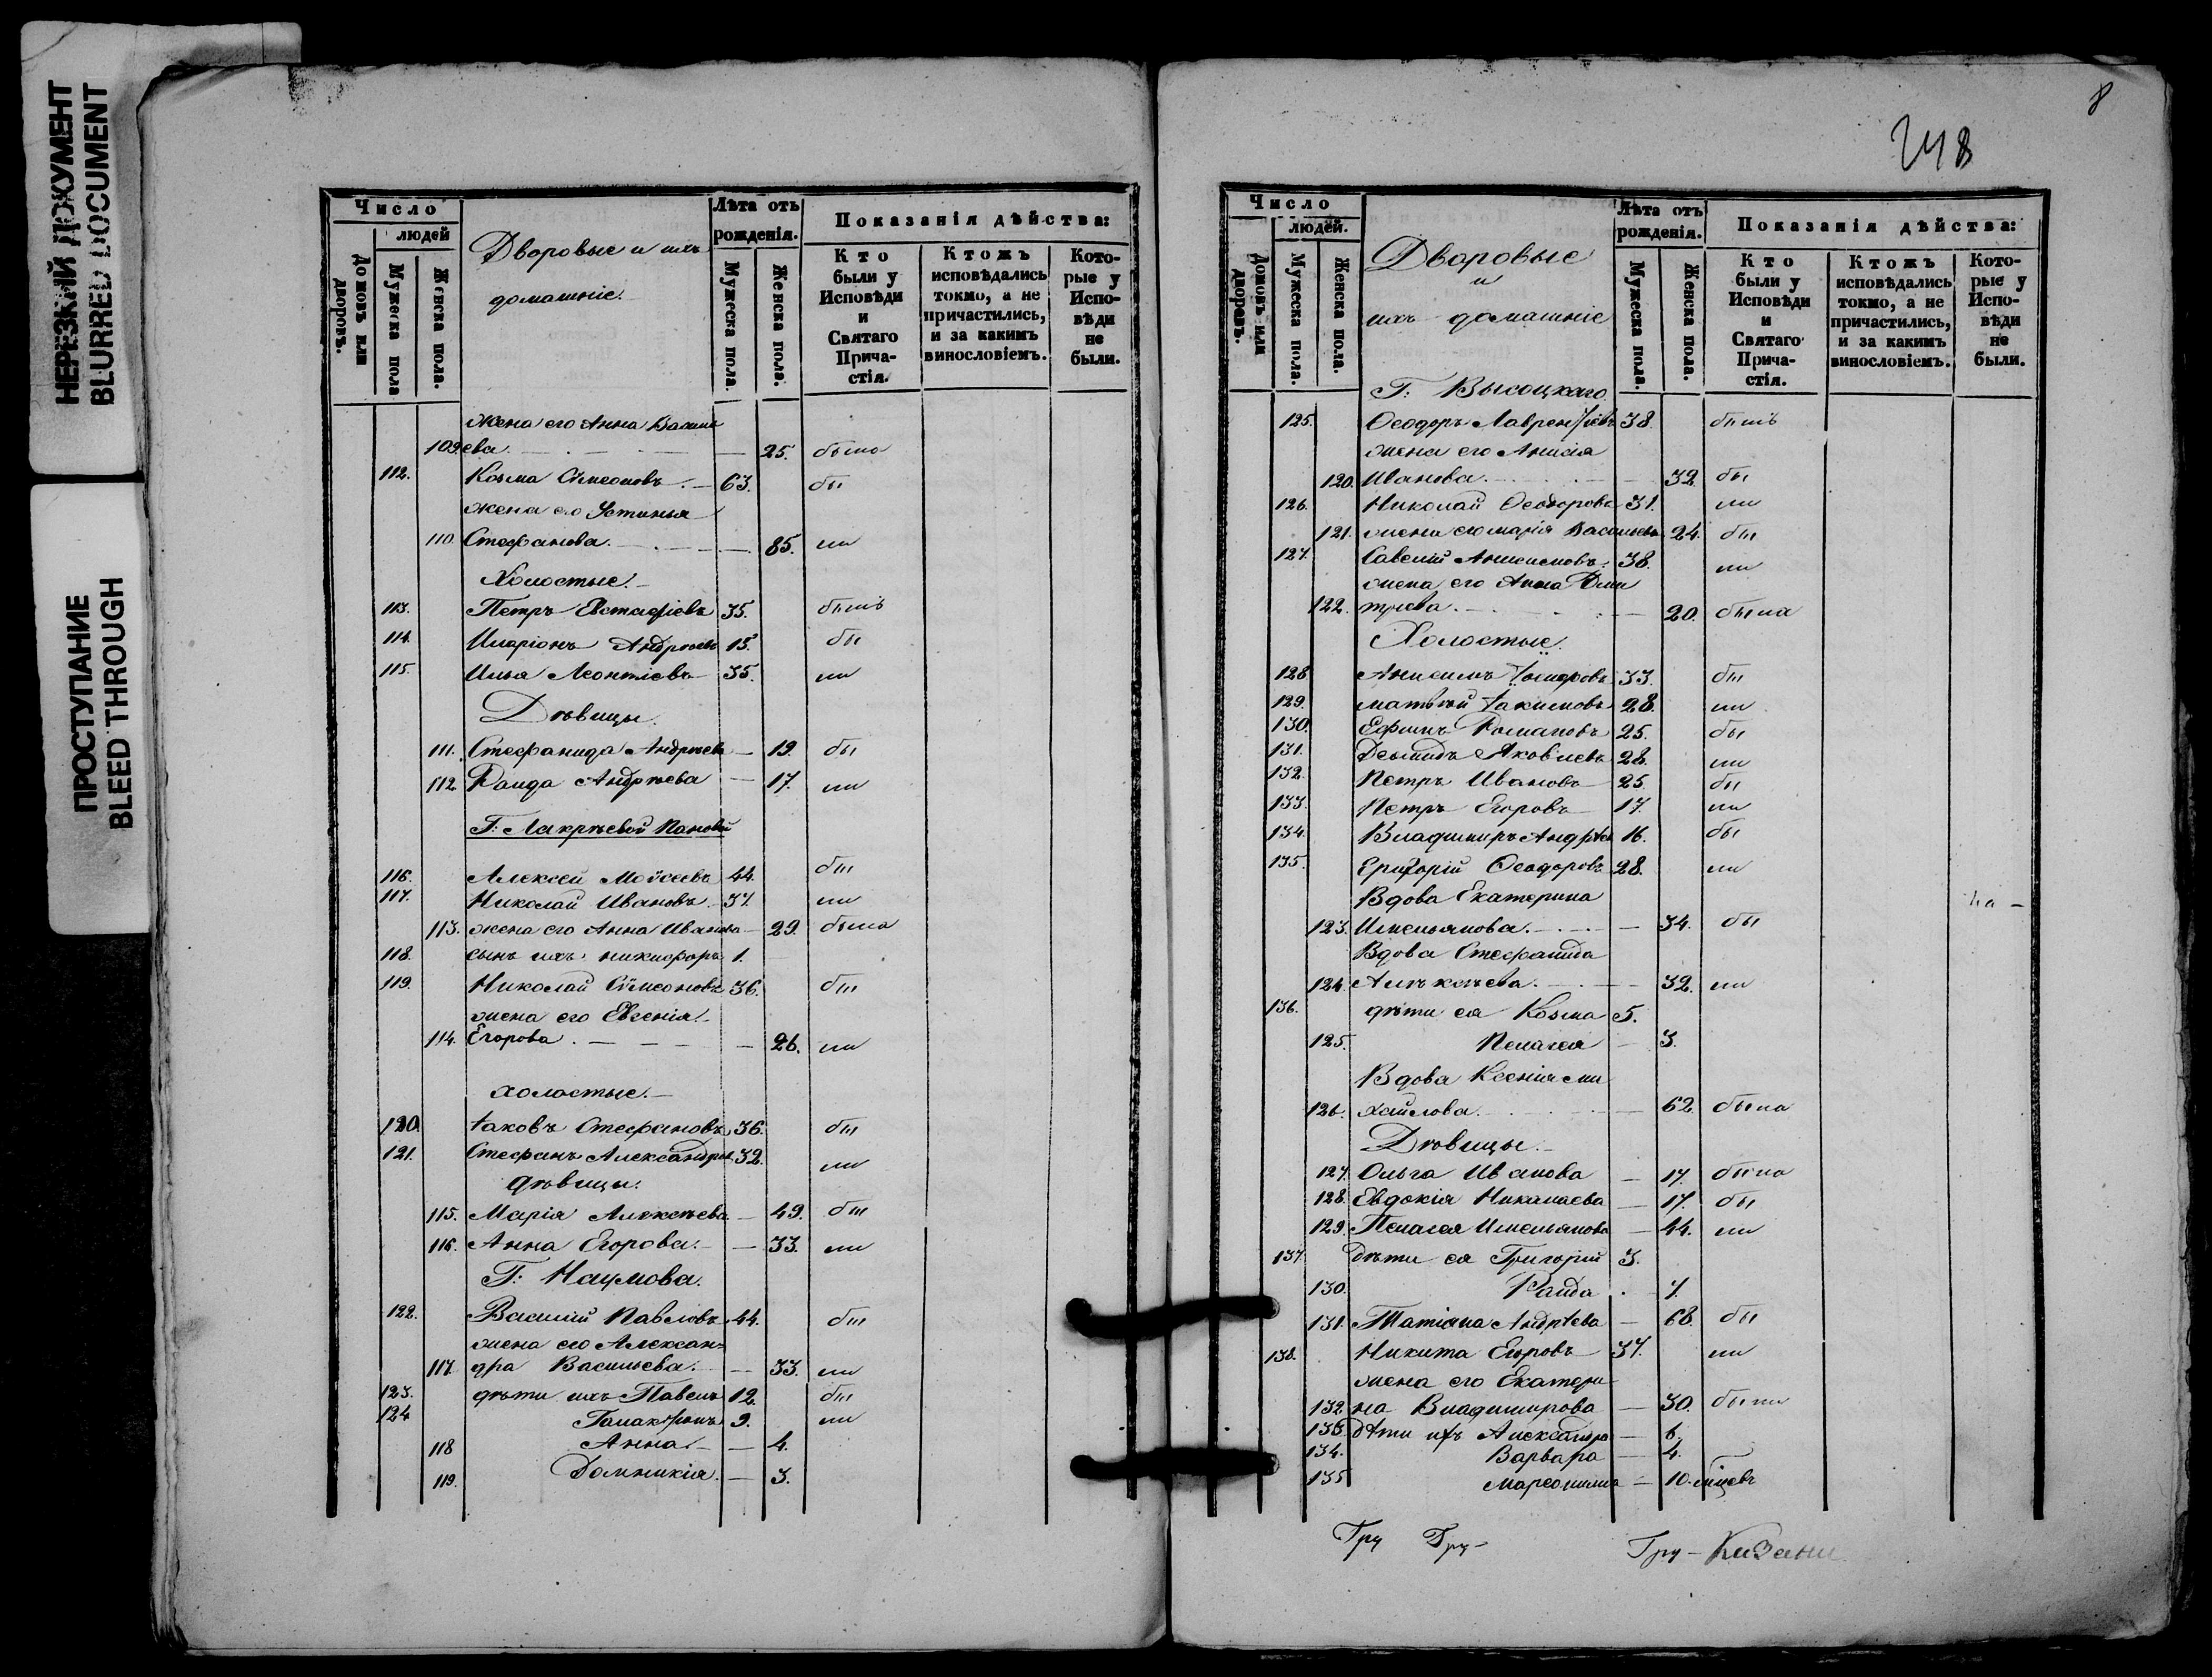 НЕРЕЗКИЙ ДОКУМЕНТ
BLURRED DOCUMENT
ПРОСТУПАНИЕ
BLEED THROUGH
Число
людей
Домовъ или дворовъ.
Мужеска пола
Женска пола.
Дворовые и ихъ
домашніе.
Лѣта отъ рожденія.
Мужеска пола.
Женска пола.
Показанія дѣйства:
Кто были у Исповѣди и Святаго Прича-стія.
Ктожъ исповѣдались токмо, а не причастились, и за какимъ винословіемъ.
Кото-рые у Испо-вѣди не были.
жена его Анна
109. ева. — 25. была
112. Козма Сѵмеоновъ. — 63. бы
жена его Устинья
110. Стефанова. — 85. ли
Холостые.
113. Петръ Евстафіевъ 35. былъ
114. Иларіонъ Андреевъ 15. бы
115. Илья Леонтіевъ 35. ли
Дѣвицы.
111. Стефанида Андрѣева — 19. бы
112. Раида Андрѣева — 17. ли
Г: Лакрѣевой Пановой
116. Алексей Моѵсеевъ 44. бы
117. Николай Ивановъ 37. ли
113. жена его Анна Иванова — 29. была
118. сынъ ихъ никифоръ 1.
119. Николай Сѵмеоновъ 36. бы
жена его Евгенія
114. Егорова. — 26. ли
холостые. —
120. Іаковъ Стефановъ 36. бы
121. Стефанъ Александровъ 32. ли
дѣвицы.
115. Марія Алексѣева — 49. бы
116. Анна Егорова. — 33. ли
Г: Наумова.
122. Василій Павловъ 44. бы
жена его Алексан-
117. дра Васильева. — 33. ли
123. дѣти ихъ Павелъ 12. бы
124 Галактіонъ 9. ли
118 Анна — 4.
119. Домникія. — 3.
8
248
Число
людей.
Домовъ или дворовъ.
Мужеска пола.
Женска пола.
Дворовые
и
ихъ домашніе
Лѣта отъ рожденія.
Мужеска пола.
Женска пола.
Показанія дѣйства:
Кто были у Исповѣди и Святаго Прича-стія.
Ктожъ исповѣдались токмо, а не причастились, и за какимъ винословіемъ.
Кото-рые у Испо-вѣди не были.
Г: Высоцкаго
125. Ѳеодоръ Лаврентіевъ 38. былъ
жена его Анисія
120. Иванова. — 32. бы
126. Николай Ѳеодоровъ 31. ли
121. жена его марія Васильева 24. бы
127. Савелій Анисимовъ. 38. ли
жена его Анна Дми
122. тріева. — 20. была
Холостые.
128 Анисимъ 33. бы
129. матвѣй Іакимовъ 28. ли
130. Ефимъ Романовъ 25. бы
131. Демидъ Яковлевъ 28. ли
132. Петръ Ивановъ 25 бы
133. Петръ Егоровъ 17. ли
134. Владимиръ Андрѣев 16. бы
135. Григорій Ѳеодоровъ 28. ли
Вдова Екатерина
123. Имельянова. — 34. бы
Вдова Стефанида
124. Алѣксѣева. — 32. ли
136. дѣти ея Козма 5.
125. Пелагея — 3.
Вдова Ксенія ми
126. хайлова. — 62. была
Дѣвицы. —
127. Ольга Иванова — 17. была
128. Евдокія Николаева — 17. бы
129. Пелагея Имельянова — 44. ли
137. дѣти ея Григорій 3.
130. Раида — 7.
131. Татіана Андрѣева — 68. бы
138. Никита Егоровъ 37. ли
жена его Екатери-
132. на Владимирова — 30. были
133. дѣти ихъ Александра — 6.
134. Варвара — 4.
135 — 10. мѣцевъ
на —
Гру Гру-
Гру - Казани